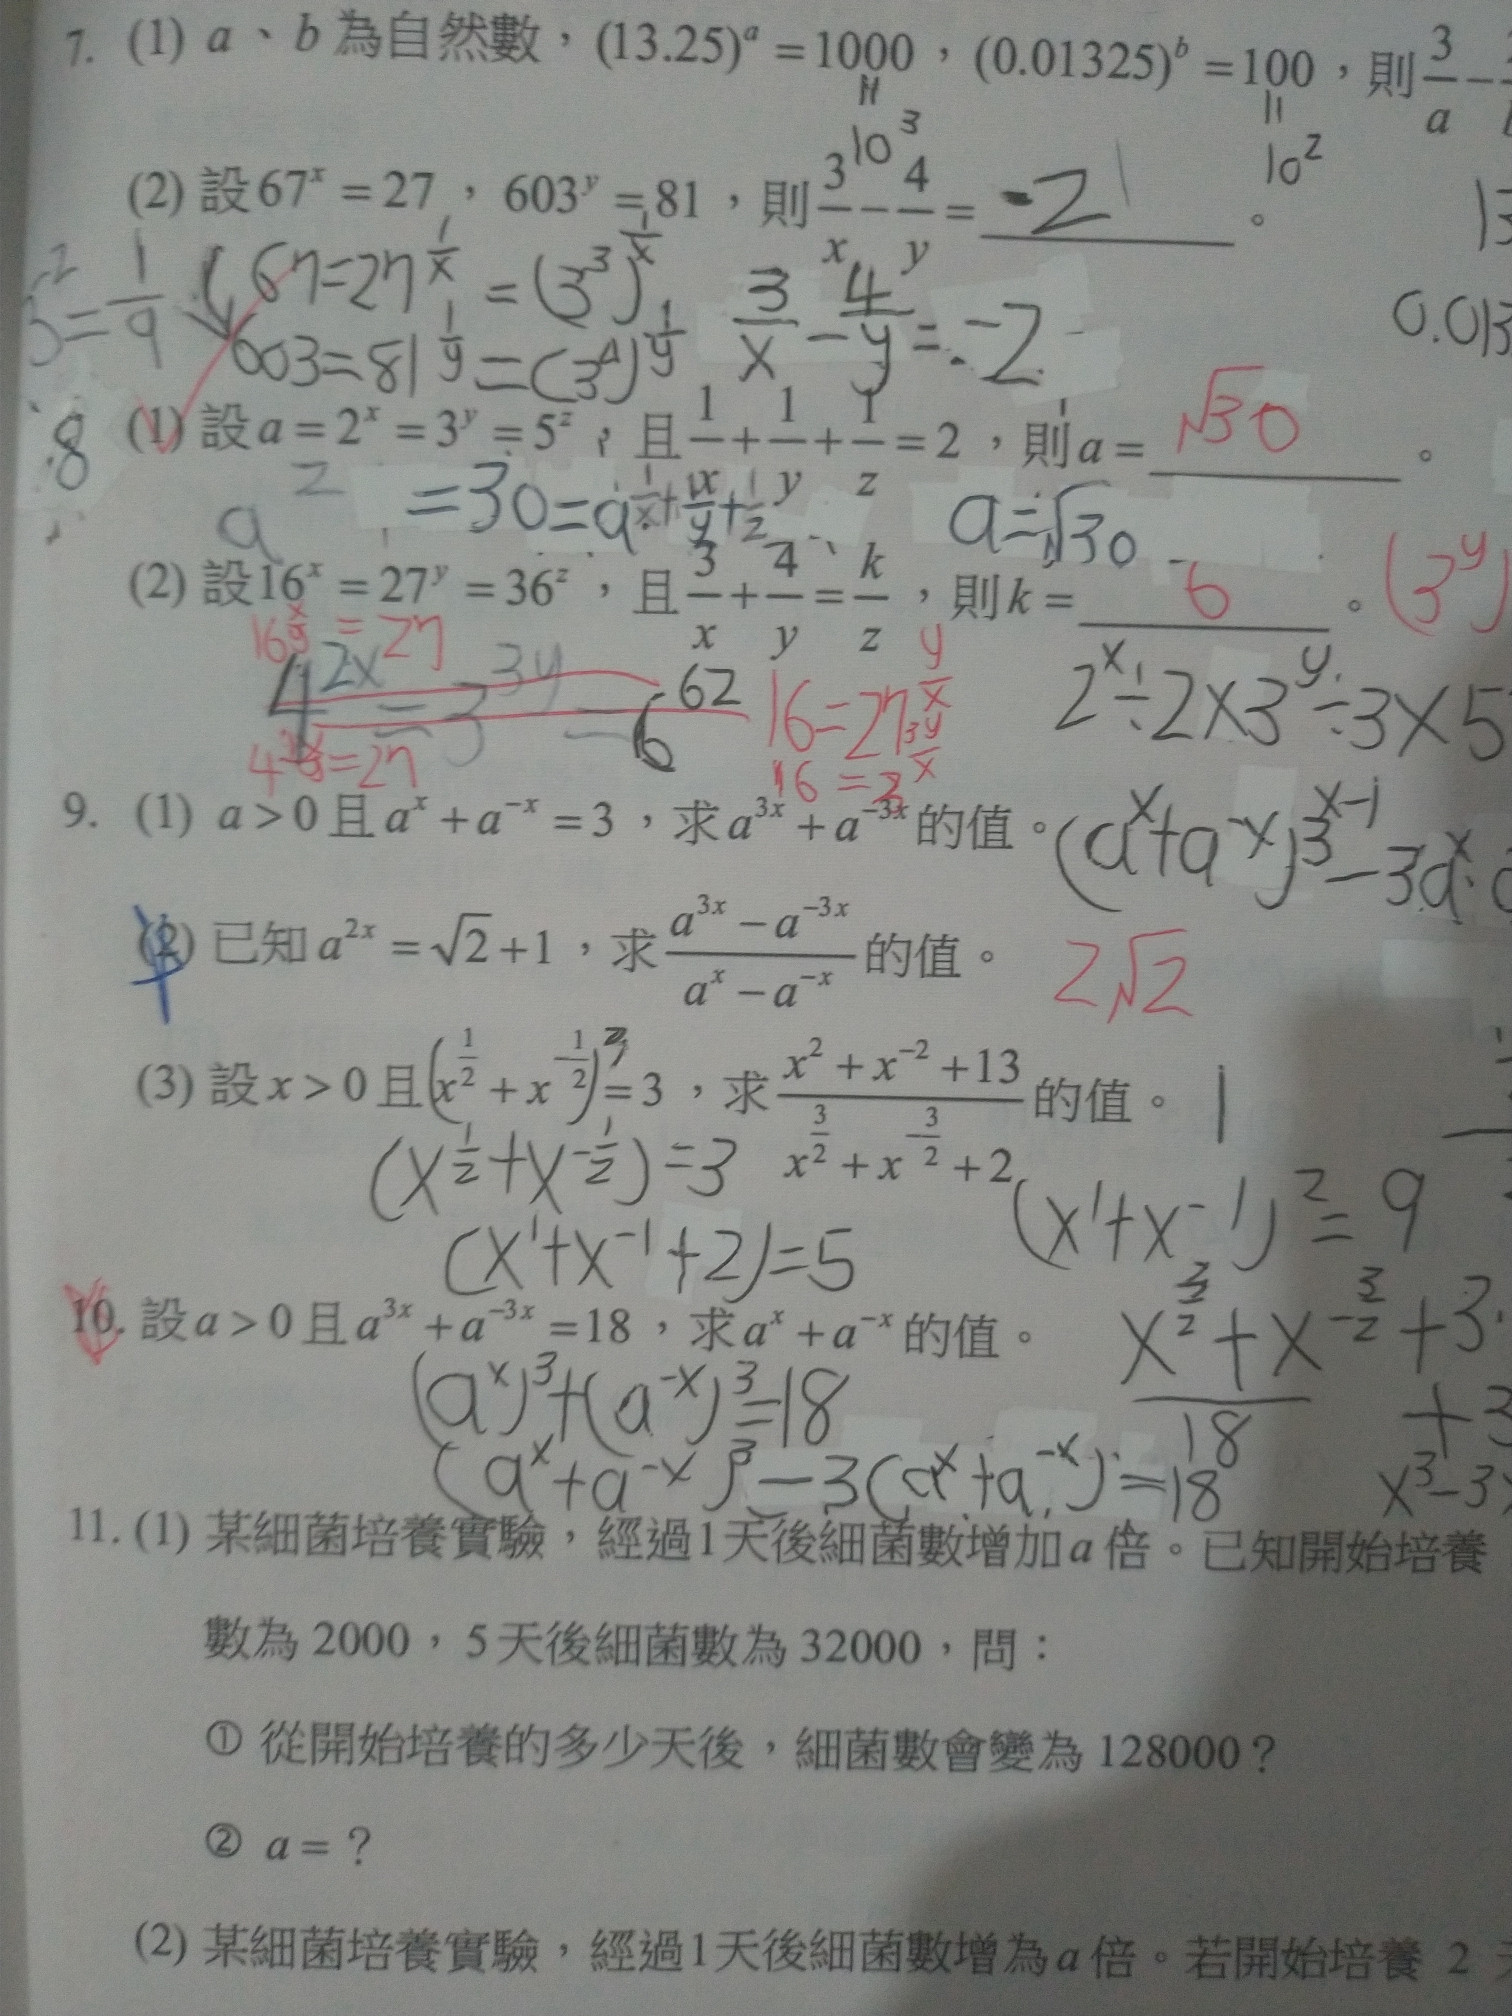 7. (1) a、b 為自然數，(13.25)^a = 1000，(0.01325)^b = 100，則 3/a −
= 10^3
= 10^2
(2) 設 67^x = 27，603^y = 81，則 3/x − 4/y = -2 。
3^-2 = 1/9
67 = 27^(1/x) = (3^3)^(1/x)
603 = 81^(1/y) = (3^4)^(1/y)
3/x − 4/y = -2
0.013
8 (1) 設 a = 2^x = 3^y = 5^z，且 1/x + 1/y + 1/z = 2，則 a = √30 。
a^2 = 30 = a^(1/x + 1/y + 1/z)
a = √30
(2) 設 16^x = 27^y = 36^z，且 3/x + 4/y = k/z，則 k = 6 。
(3^y)
16^(x/y) = 27
4^2x = 3^3y = 6^2z
16 = 27^(y/x)
2^x ÷ 2 × 3^y ÷ 3 × 5
16 = 3^(3y/x)
9. (1) a > 0 且 a^x + a^−x = 3，求 a^3x + a^−3x 的值。
(a^x + a^-x)^3 − 3a^x
(2) 已知 a^2x = √2 + 1，求 (a^3x − a^−3x)/(a^x − a^−x) 的值。 2√2
(3) 設 x > 0 且 (x^(1/2) + x^(−1/2)) = 3，求 (x^2 + x^−2 + 13)/(x^(3/2) + x^(−3/2) + 2) 的值。
(x^(1/2) + x^(-1/2)) = 3
(x^1 + x^-1)^2 = 9
(x^1 + x^-1 + 2) = 5
10. 設 a > 0 且 a^3x + a^−3x = 18，求 a^x + a^−x 的值。
x^(3/2) + x^(-3/2) + 3
18
(a^x)^3 + (a^-x)^3 = 18
(a^x + a^-x)^3 − 3(a^x + a^-x) = 18
x^3 − 3
11. (1) 某細菌培養實驗，經過1天後細菌數增加 a 倍。已知開始培養
數為 2000，5 天後細菌數為 32000，問：
① 從開始培養的多少天後，細菌數會變為 128000？
② a = ？
(2) 某細菌培養實驗，經過1天後細菌數增為 a 倍。若開始培養 2